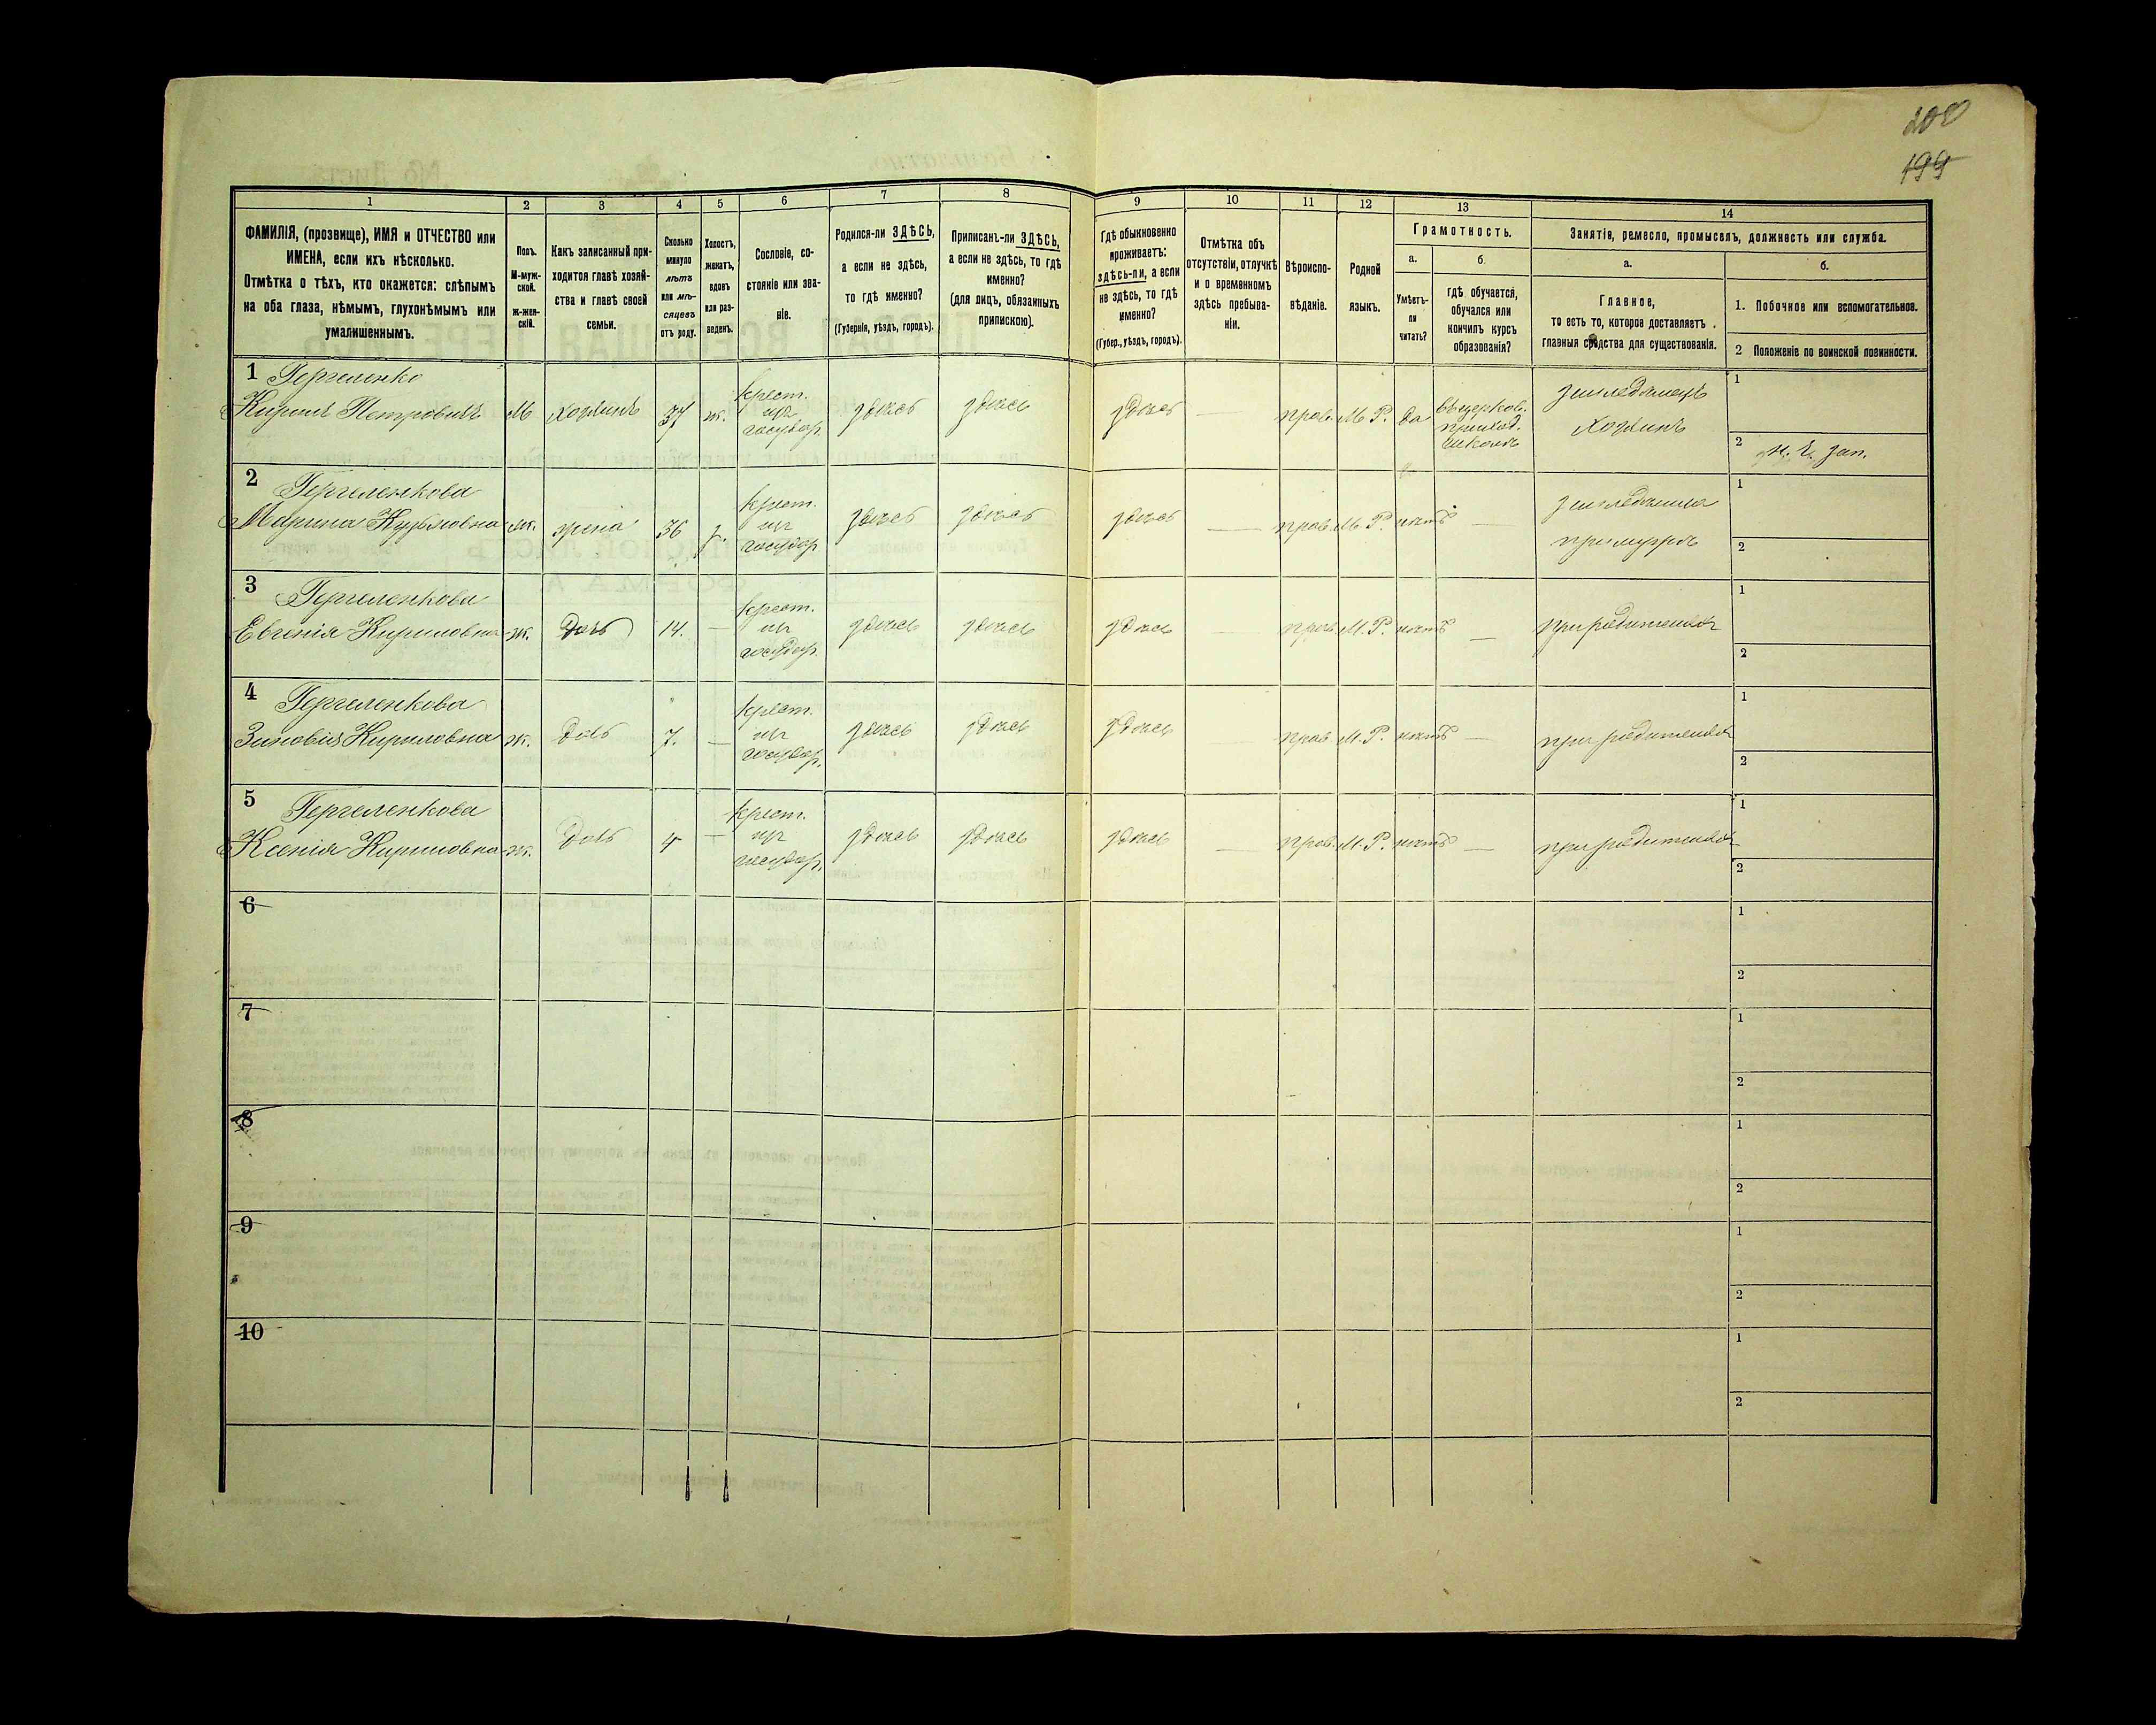 200
199
1 2 3 4 5 6 7 8 9 10 11 12 13 14
ФАМИЛІЯ, (прозвище), ИМЯ и ОТЧЕСТВО или
ИМЕНА, если ихъ нѣсколько.
Отмѣтка о тѣхъ, кто окажется: слѣпымъ
на оба глаза, нѣмымъ, глухонѣмымъ или
умалишеннымъ.
Полъ.
М-муж-
ской.
ж-жен-
скій.
Какъ записанный при-
ходится главѣ хозяй-
ства и главѣ своей
семьи.
Сколько
минуло
лѣтъ
или мѣ-
сяцевъ
отъ роду.
Холостъ,
женатъ,
вдовъ
или раз-
веденъ.
Сословіе, со-
стояніе или зва-
ніе.
Родился-ли ЗДѢСЬ,
а если не здѣсь,
то гдѣ именно?
(Губернія, уѣздъ, городъ).
Приписанъ-ли ЗДѢСЬ,
а если не здѣсь, то гдѣ
именно?
(для лицъ, обязанныхъ
припискою).
Гдѣ обыкновенно
проживаетъ:
здѣсь-ли, а если
не здѣсь, то гдѣ
именно?
(Губер., уѣздъ, городъ).
Отмѣтка объ
отсутствіи, отлучкѣ
и о временномъ
здѣсь пребыва-
ніи.
Вѣроиспо-
вѣданіе.
Родной
языкъ.
Грамотность.
а.
Умѣетъ-
ли
читать?
б.
гдѣ обучается,
обучался или
кончилъ курсъ
образованія?
Занятіе, ремесло, промыселъ, должность или служба.
а.
Главное,
то есть то, которое доставляетъ
главныя средства для существованія.
б.
1. Побочное или вспомогательное.
2 Положеніе по воинской повинности.
1 Гергеленко
Кирилъ Петровичъ М хозяинъ 37 ж. крест. изъ государ. здѣсь здѣсь здѣсь — прав. М. Р. да въ церков. приход. школѣ земледѣлецъ хозяинъ 1
2
2 Гергеленкова
Марина Кузьмовна ж. жена 36 з. крест. изъ государ. здѣсь здѣсь здѣсь — прав. М. Р. нѣтъ — 1
при мужѣ 2
3 Гергеленкова
Евгенія Кириловна ж. дочь 14. — крест. изъ государ. здѣсь здѣсь здѣсь — прав. М. Р. нѣтъ — при родителяхъ 1
2
4 Гергеленкова
Зиновія Кириловна ж. дочь 7. — крест. изъ государ. здѣсь здѣсь здѣсь — прав. М. Р. нѣтъ — при родителяхъ 1
2
5 Гергеленкова
Ксенія Кириловна ж. дочь 4 — крест. изъ государ. здѣсь здѣсь здѣсь — прав. М. Р. нѣтъ — при родителяхъ 1
2
6 1
2
7 1
2
8 1
2
9 1
2
10 1
2